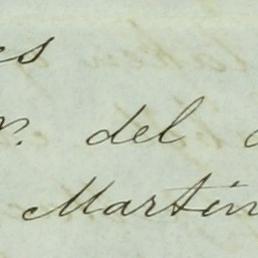 es
r. del
Martín